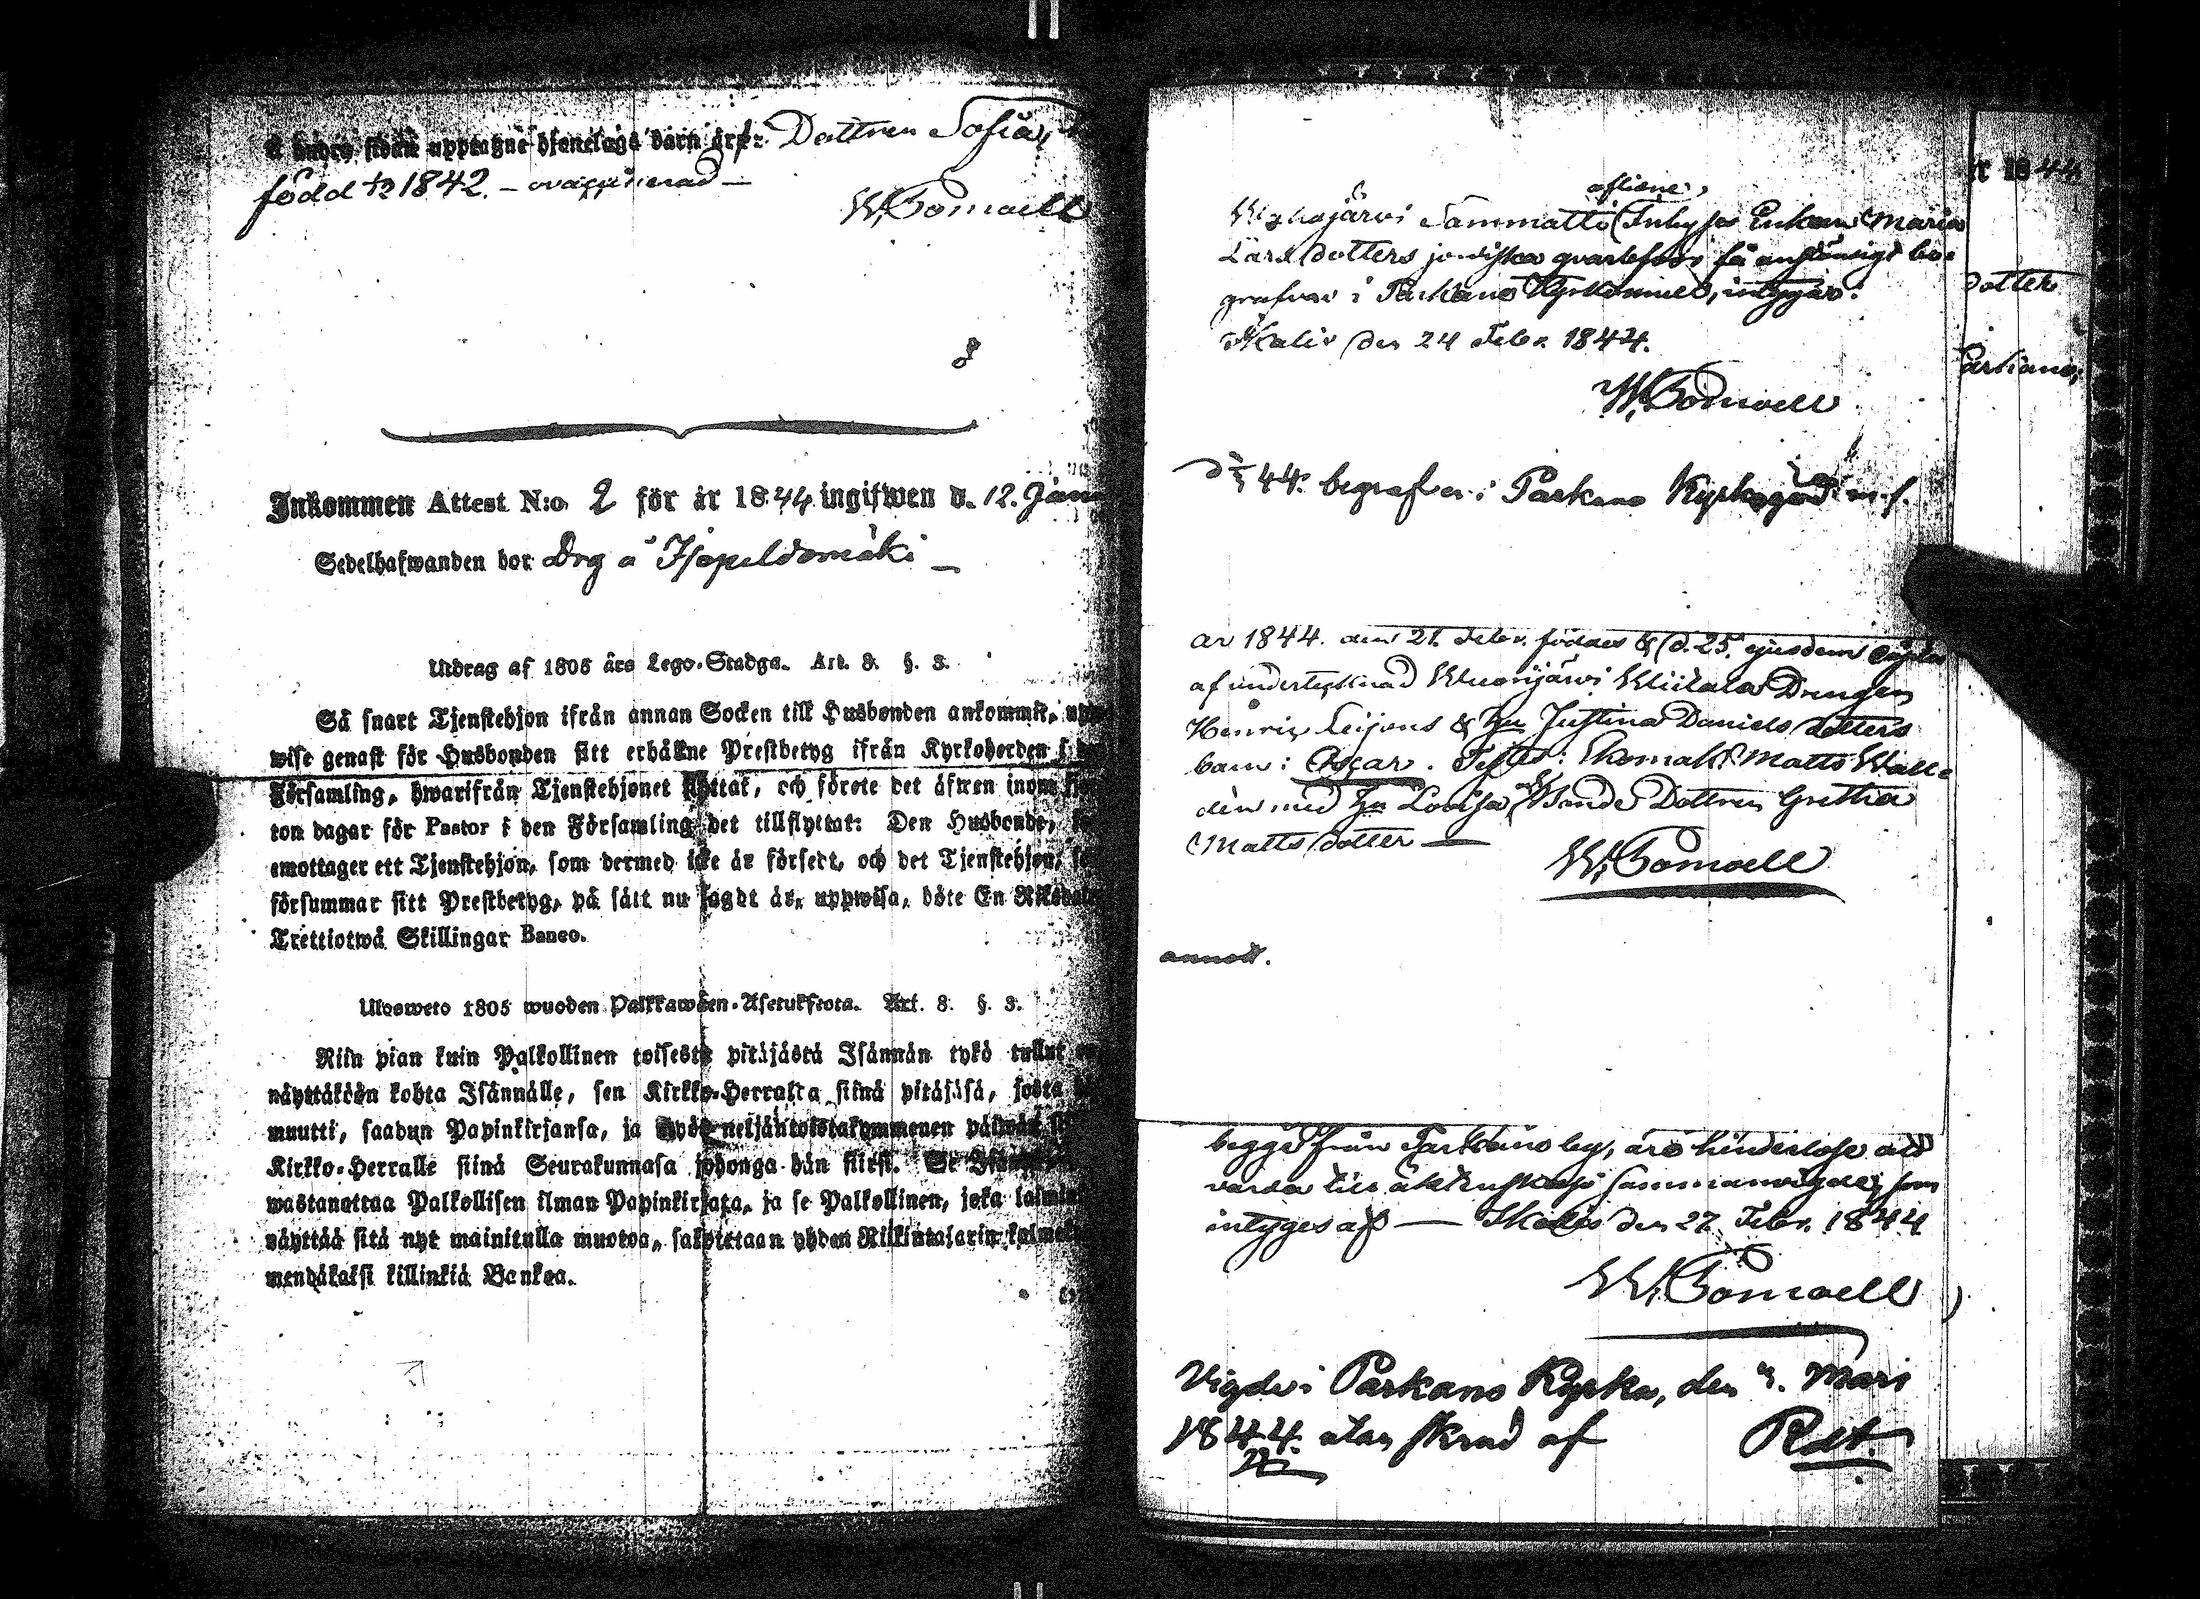 å andra sidan upptagne ohjenelags barn äro: Dottren Sofia,
född 1842. — ovaccinerad —
W. Bomoell
Inkommen Attest N:o 2 för år 1844 ingifwen d. 12. Janu
Sedelhafwanden bor Drg å
Utdrag af 1805 års Lego-Stadga. Art. 8. §. 3.
Så snart Tjenstehjon ifrån annan Socken till Husbonden ankommit, upp
wise genast för Husbonden sitt erhållne Prestbetyg ifrån Kyrkoherden i
Församling, hwarifrån Tjenstehjonet flyttat, och förete det äfwen inom fjor
ton dagar för Pastor i den Församling det tillflyttat: Den Husbonde, som
emottager ett Tjenstehjon, som dermed icke är försedt, och det Tjenstehjon, som
försummar sitt Prestbetyg, på sätt nu sagdt är, uppwisa, böte En Riksdaler
Trettiotwå Skillingar Banco.
Ulosweto 1805 wuoden Palkkawäen-Asetuksesta. Art. 8. §. 3.
Niin pian kuin Palkollinen toisesta pitäjästä Isännän tykö tullut on
näyttäköön kohta Isännälle, sen Kirkko-Herralta siinä pitäjäsä, josta
muutti, saadun Papinkirjansa, ja myös neljäntoistakymmenen päiwän
Kirkko-Herralle siinä Seurakunnasa johonga hän siirsi. Se Isäntä
wastanottaa Palkollisen ilman Papinkirjata, ja se Palkollinen, joka laimin
näyttää sitä nyt mainitulla muotoa, sakoitetaan yhden Riikintalarin kolme
mendäkaksi killinkiä Bankoa.
aflidne
Sammatti Inhyses Enkan Maria
Lars dotters jordiska qvarlefvor få anständigt be-
grafvas i Parkano Kyrkomull, intygar:
Ikalis den 24 Febr. 1844.
W. Bomoell
44. begrafven i Parkano Kyrkogård m.f.
år 1844. den 21. Febr. föddes & d. 25. ejusdem döptes
af undertecknad Wuorijärvi Wiitala Drengen
Henric Leijons & Hu Justina Daniels dotters
barn: Oscar. Testes: Thomas Matts
den med Hu Lovisa, & Bonde Dottren Gretha
Matts dotter —
W. Bomoell
annott.
begge från Parkano by, äro hinderlöse att
varda till äktenskap sammanvigde, som
intyges af — Ikalis den 27 Febr. 1844
W. Bomoell
Vigde i Parkano Kyrka, den 3. Mars
1844. utan skrud af Rdt.
1844
dotter
Parkano,